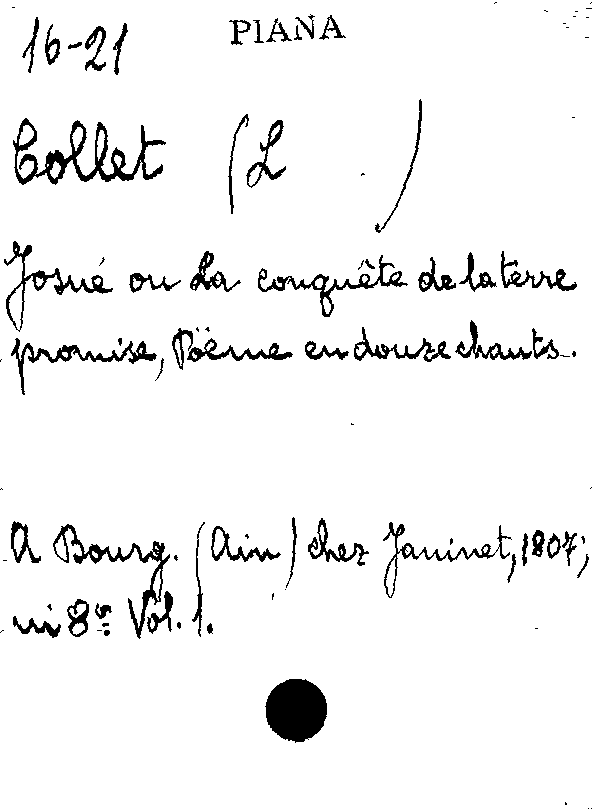 16-21 PIANA
Collet (L )
Josué ou La conquête de la terre
promise, Poëme en douze chants.
A Bourg. (Ain) chez Janinet, 1807;
in 8º. Vol. 1.